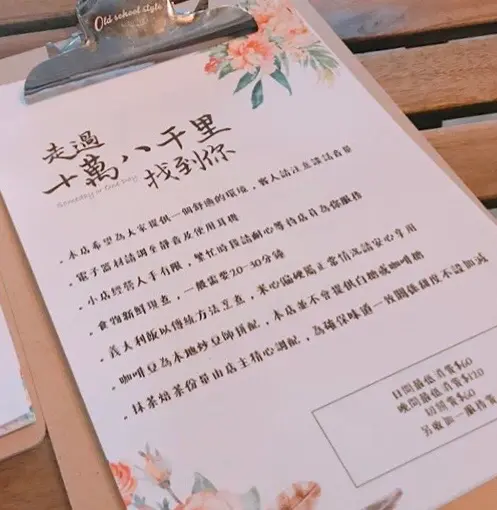 Old school style
走過
十萬八千里
找到你
Someday or One Day
．本店希望為大家提供一個舒適的環境，客人請注意談話音量
．電子器材請調至靜音及使用耳機
．小店經營人手有限，繁忙時段請耐心等待店員為你服務
．食物新鮮現煮，一般需要20-30分鐘
．義大利飯以傳統方法烹煮，米心偏硬屬正常情況請安心享用
．咖啡豆為本地炒豆師拼配，本店並不會提供白糖或咖啡糖
．抹茶焙茶份量由店主精心調配，為確保味道一致關係甜度不設加減
日間最低消費$60
晚間最低消費$120
切餅費$60
另收加一服務費